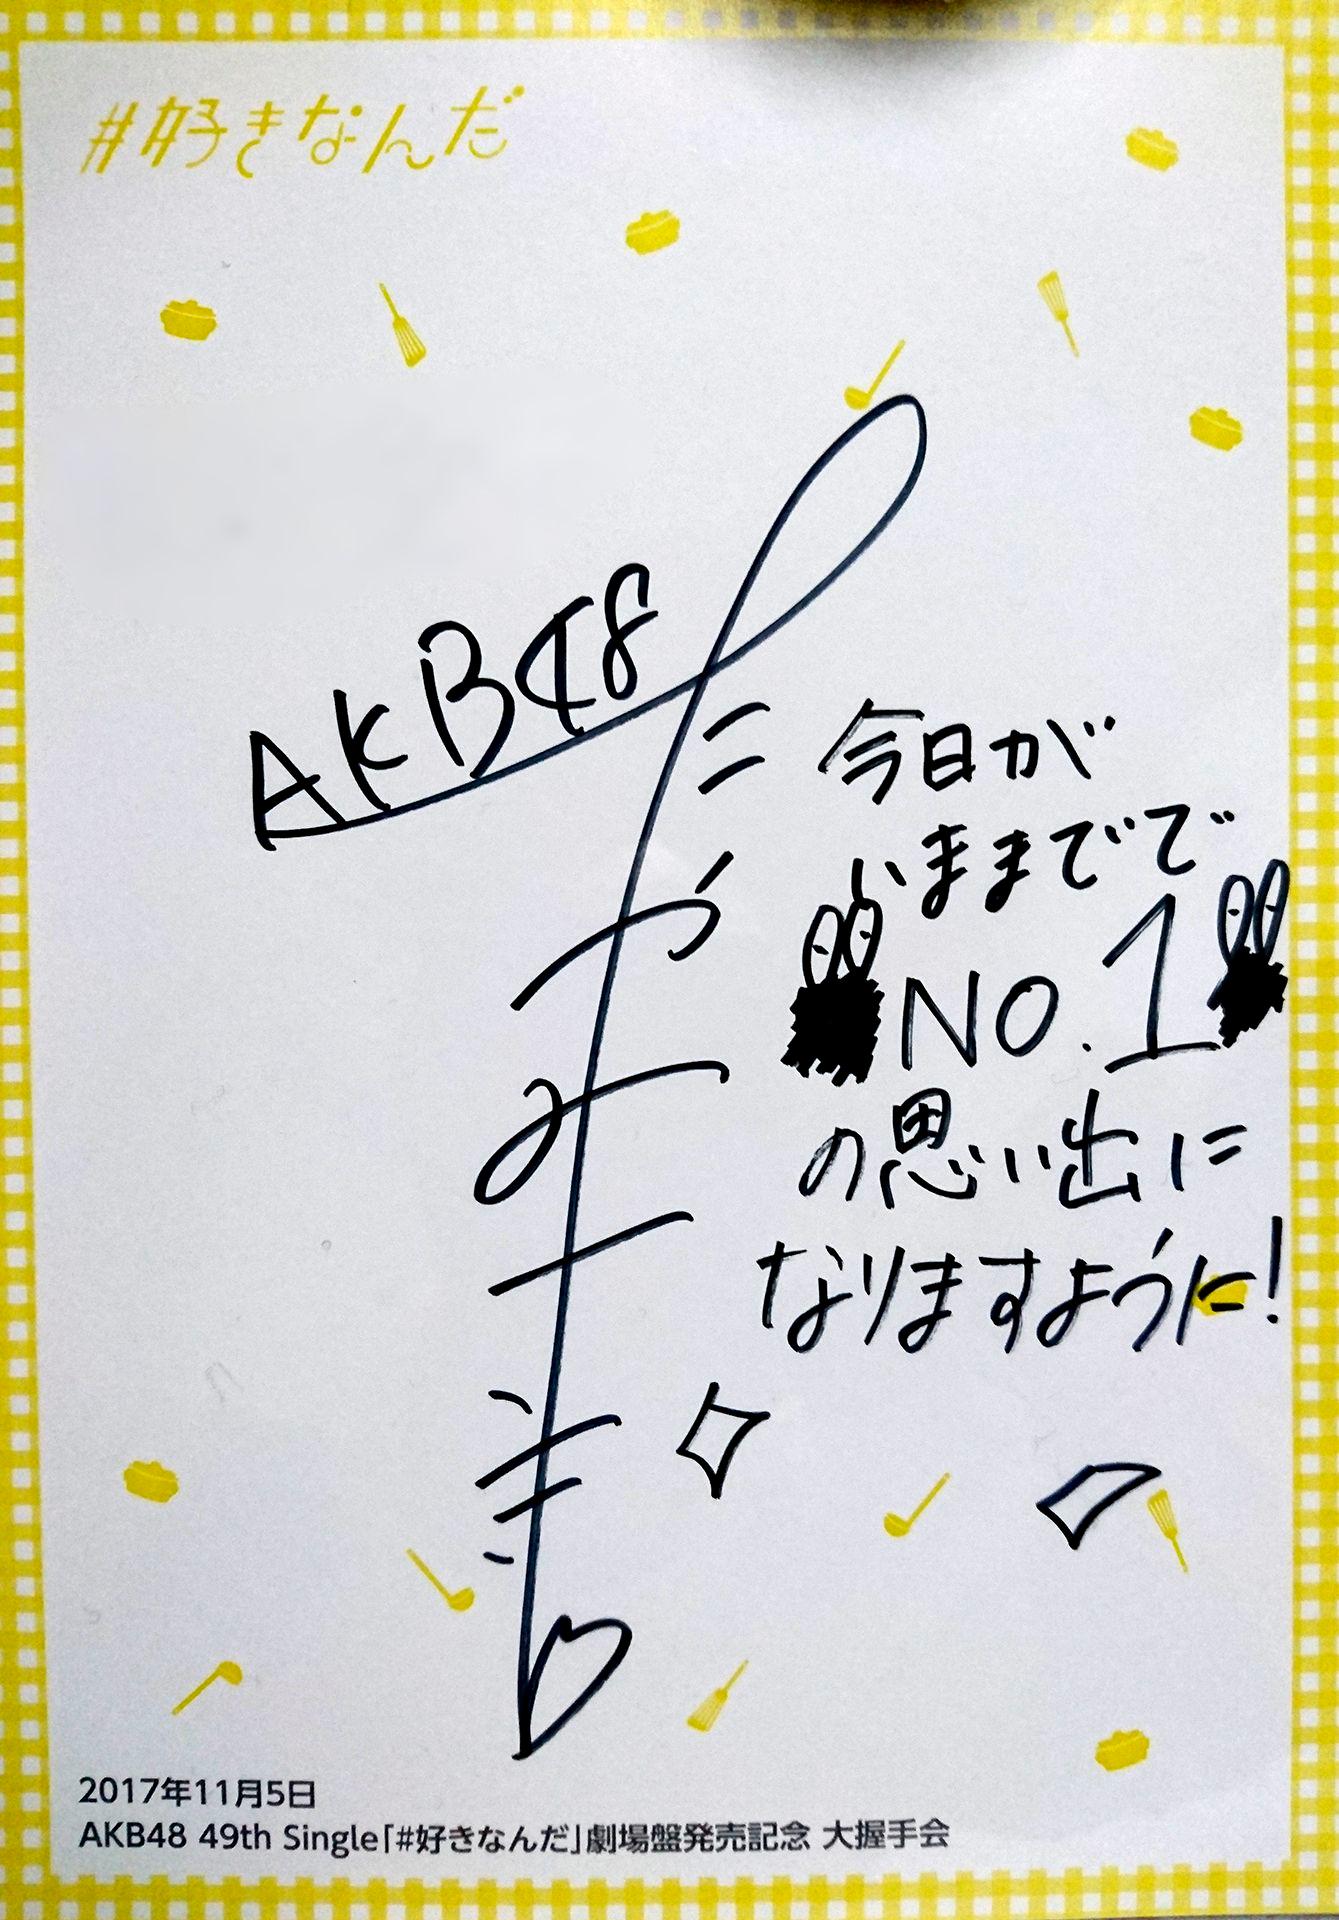 #好きなんだ
AKB48
今日が
いままでで
NO.1
の思い出に
なりますように!
2017年11月5日
AKB48 49th Single「#好きなんだ」劇場盤発売記念 大握手会